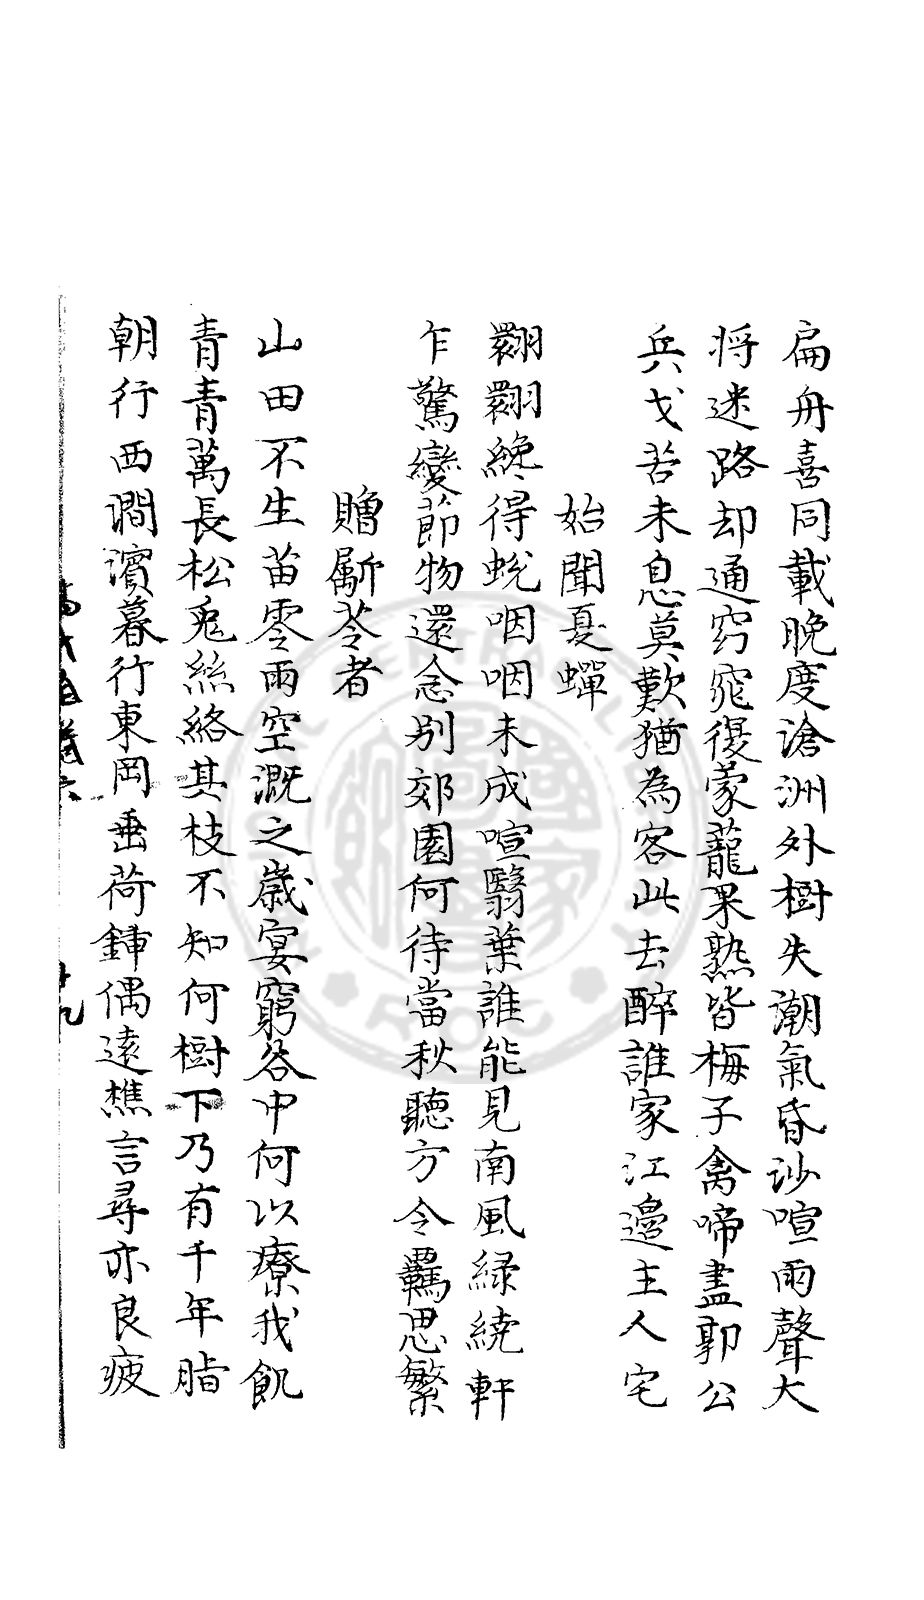 扁舟喜同載晚度滄洲外樹失潮氣昏沙喧雨聲大
将迷路却通窈窕復蒙蘢果熟皆梅子禽啼盡郭公
兵戈苦未息莫歎猶為客此去醉誰家江邊主人宅
始聞夏蟬
翾翾纔得蛻咽咽未成喧翳葉誰能見南風緑繞軒
乍驚變節物還念别郊園何待當秋聽方令羈思繁
贈斸苓者
山田不生苗零雨空溉之歲宴窮谷中何以療我飢
青青萬長松兎絲絡其枝不知何樹下乃有千年脂
朝行西澗濱暮行東岡垂荷鍤偶遠樵言尋亦良疲